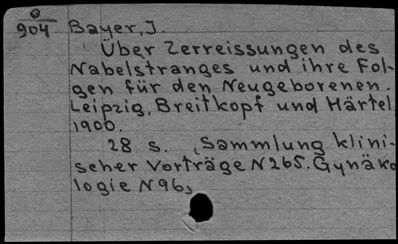 904 Bayer, J.
Über Zerreissungen des
Nabelstranges und ihre Fol-
gen für den Neugeborenen.
Leipzig, Breitkopf und Härtel
1900.
28 s. (Sammlung klini-
scher Vorträge N 265. Gynäko
logie N 96)